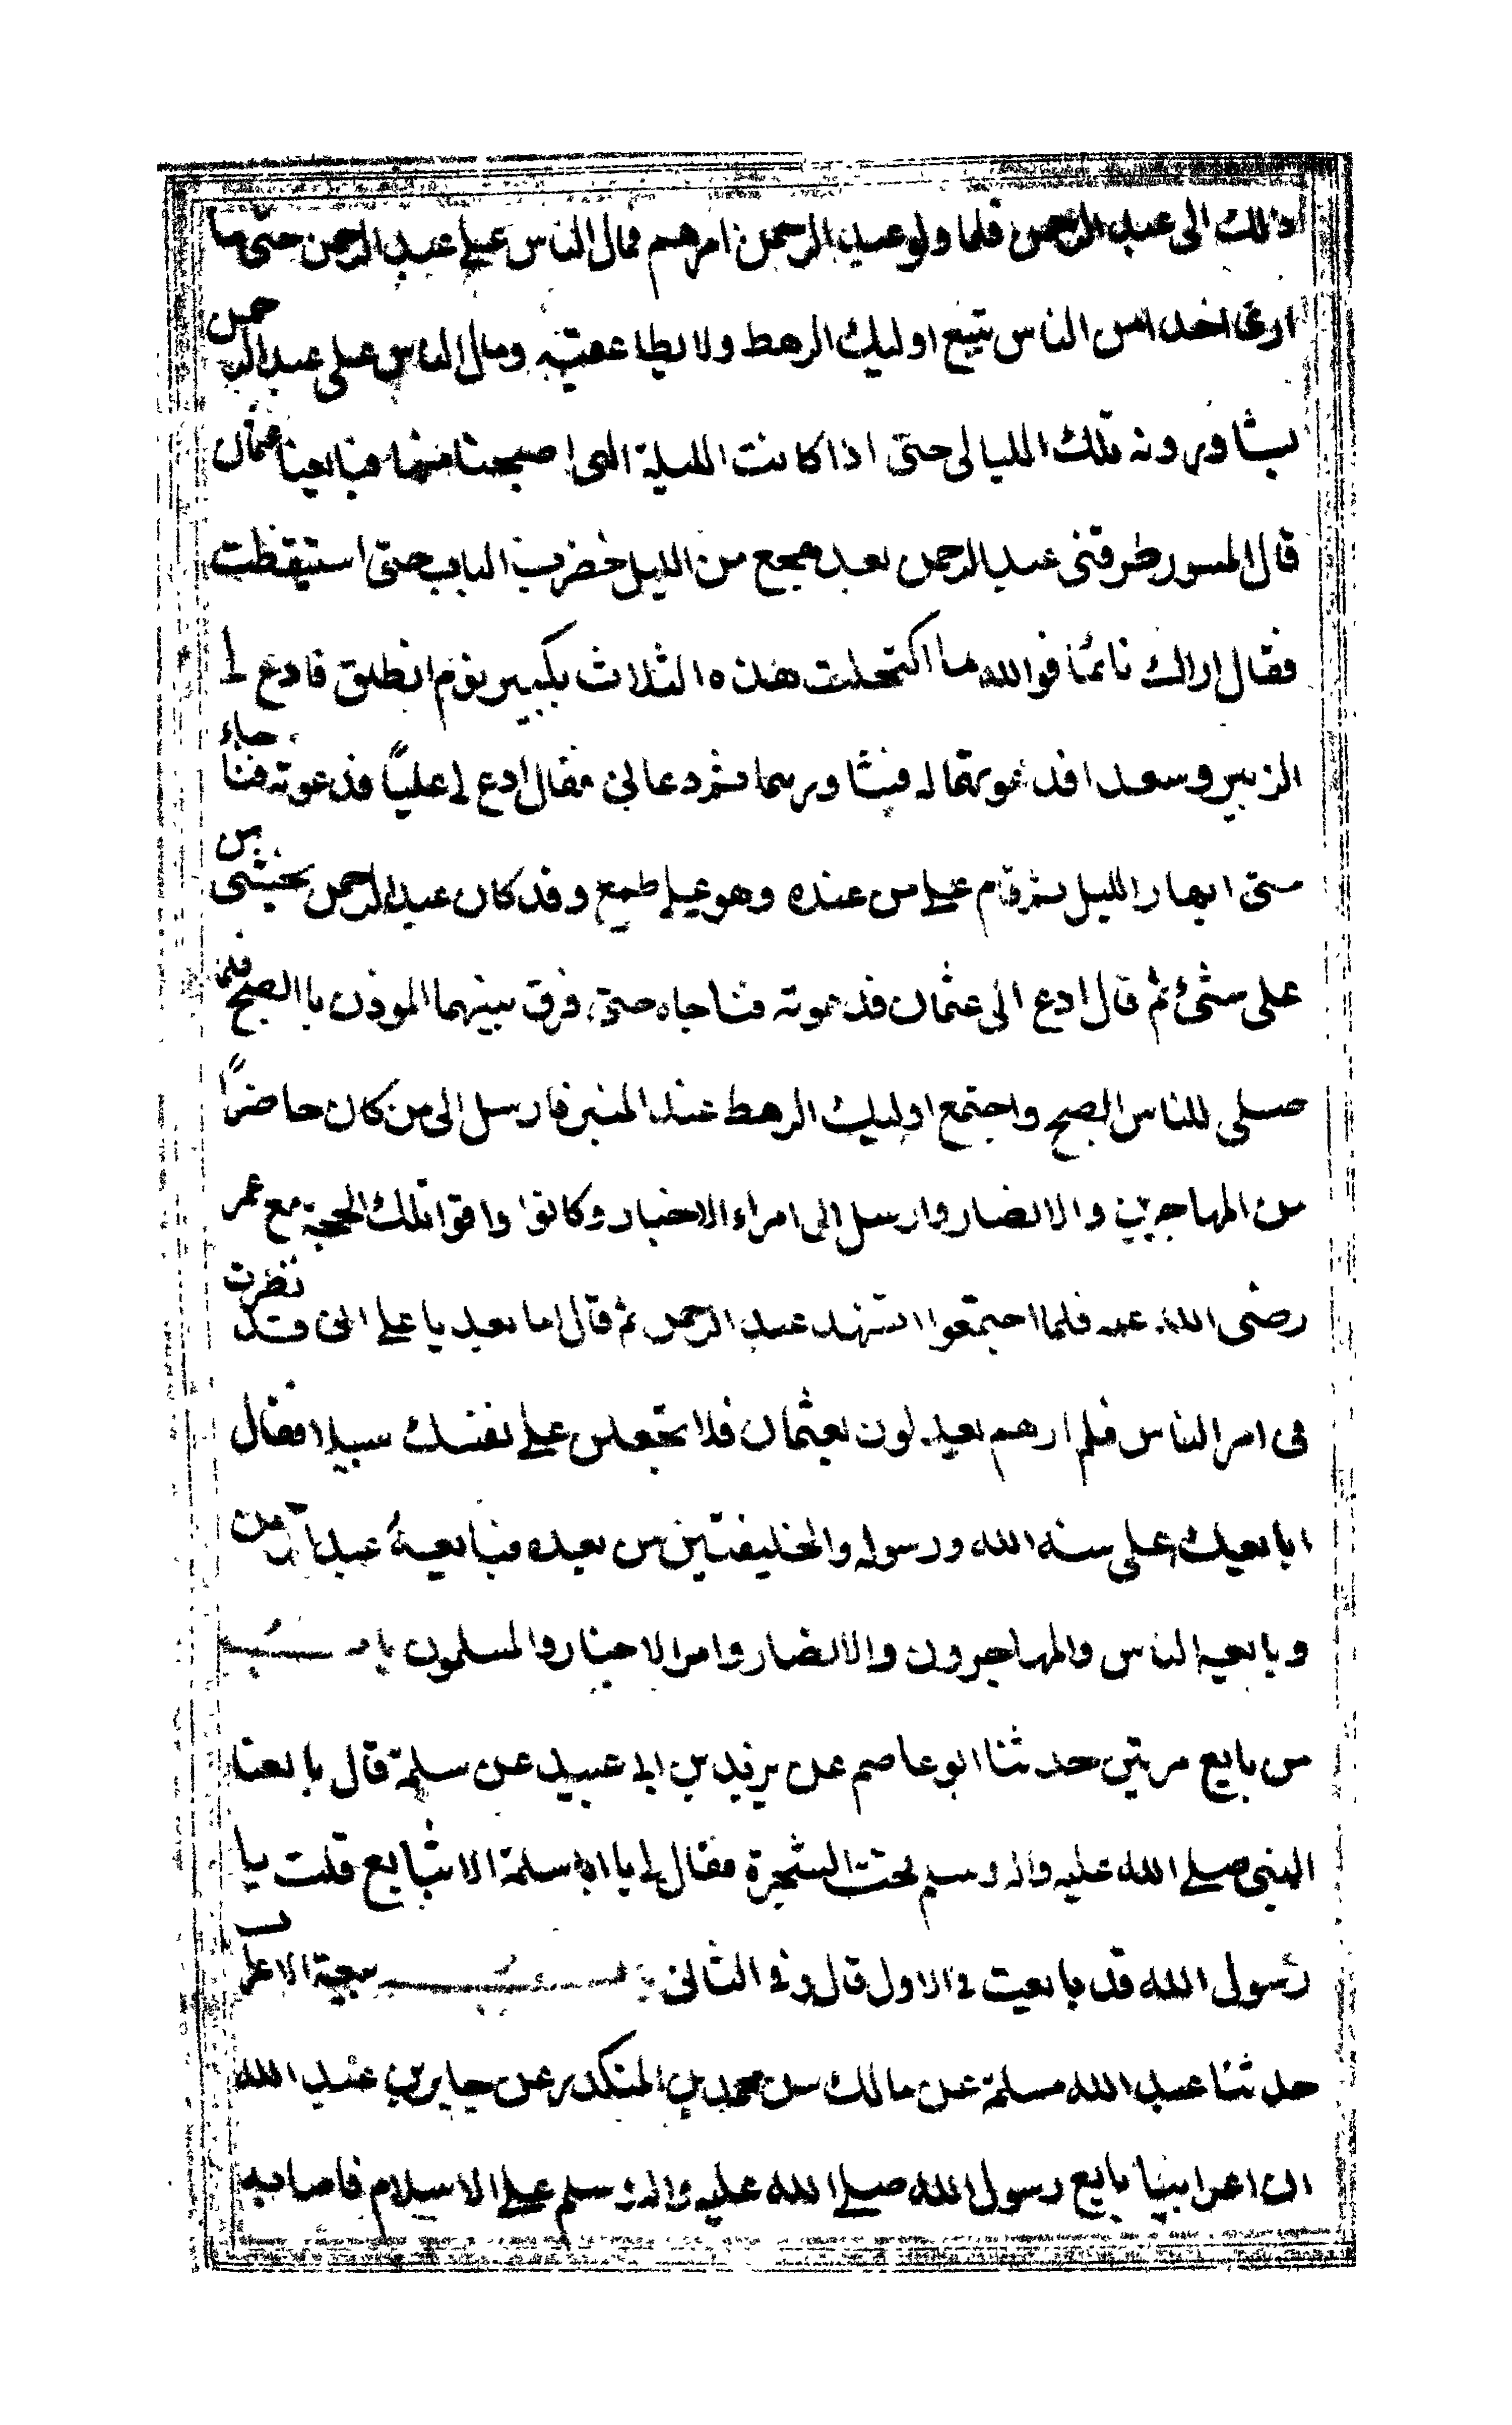 ذلك الى عبد الرحمن فلما ولو عبد الرحمن امرهم فمال الناس على عبد الرحمن حتى ما
ارى احدا من الناس يتبع اوليك الرهط ولا يطا عقبه ومال الناس على عبد الرحمن
يشاورونه تلك الليالى حتى اذا كانت الليلة التى اصبحنا منها فبايعنا عثمان
قال المسور طرقنى عبد الرحمن بعد هجع من الليل فضرب الباب حتى استيقظت
فقال اراك نائمًا فوالله ما اكتحلت هذه الثلاث بكبير نوم انطلق فادع لى
الزبير وسعدا فدعوتهما له فشاورهما ثم دعانى فقال ادع لى عليًا فدعوته فناجاه
حتى ابهار الليل ثم قام على من عنده وهو على طمع وقد كان عبد الرحمن يخشى من
على شئ ثم قال ادع الى عثمان فدعوته فناجاه حتى فرق بينهما الموذن باالصبح فلما
صلى للناس الصبح واجتمع اوليك الرهط عند المنبر فارسل الى من كان حاضرًا
من المهاجرين والانصار وارسل الى امراء الاجناد وكانوا وافوا تلك الحجة مع عمر
رضى الله عنه فلما اجتمعوا اتشهد عبد الرحمن ثم قال اما بعد يا على انى قد نظرت
فى امر الناس فلم ارهم يعدلون بعثمان فلا تجعلن على نفسك سبيلا فقال
ابايعك على سنه الله ورسوله والخليفتين من بعده فبايعه عبد الرحمن
وبايعه الناس والمهاجرون والانصار وامرا الاجناد والمسلمون باب
من بايع مرتين حدثنا ابو عاصم عن يزيد بن ابى عبيد عن سلمة قال بايعنا
النبى صلى الله عليه واله وسلم تحت الشجرة فقال لى يا ابا سلمة الا تبايع قلت يا
رسول الله قد بايعت فى الاول قال وفى الثانى باب بيعة الاعراب
حدثنا عبد الله مسلمة عن مالك عن محمد بن المنكدر عن جابر بن عبد الله
ان اعرابيا بايع رسول الله صلى الله عليه واله وسلم على الاسلام فاصابه